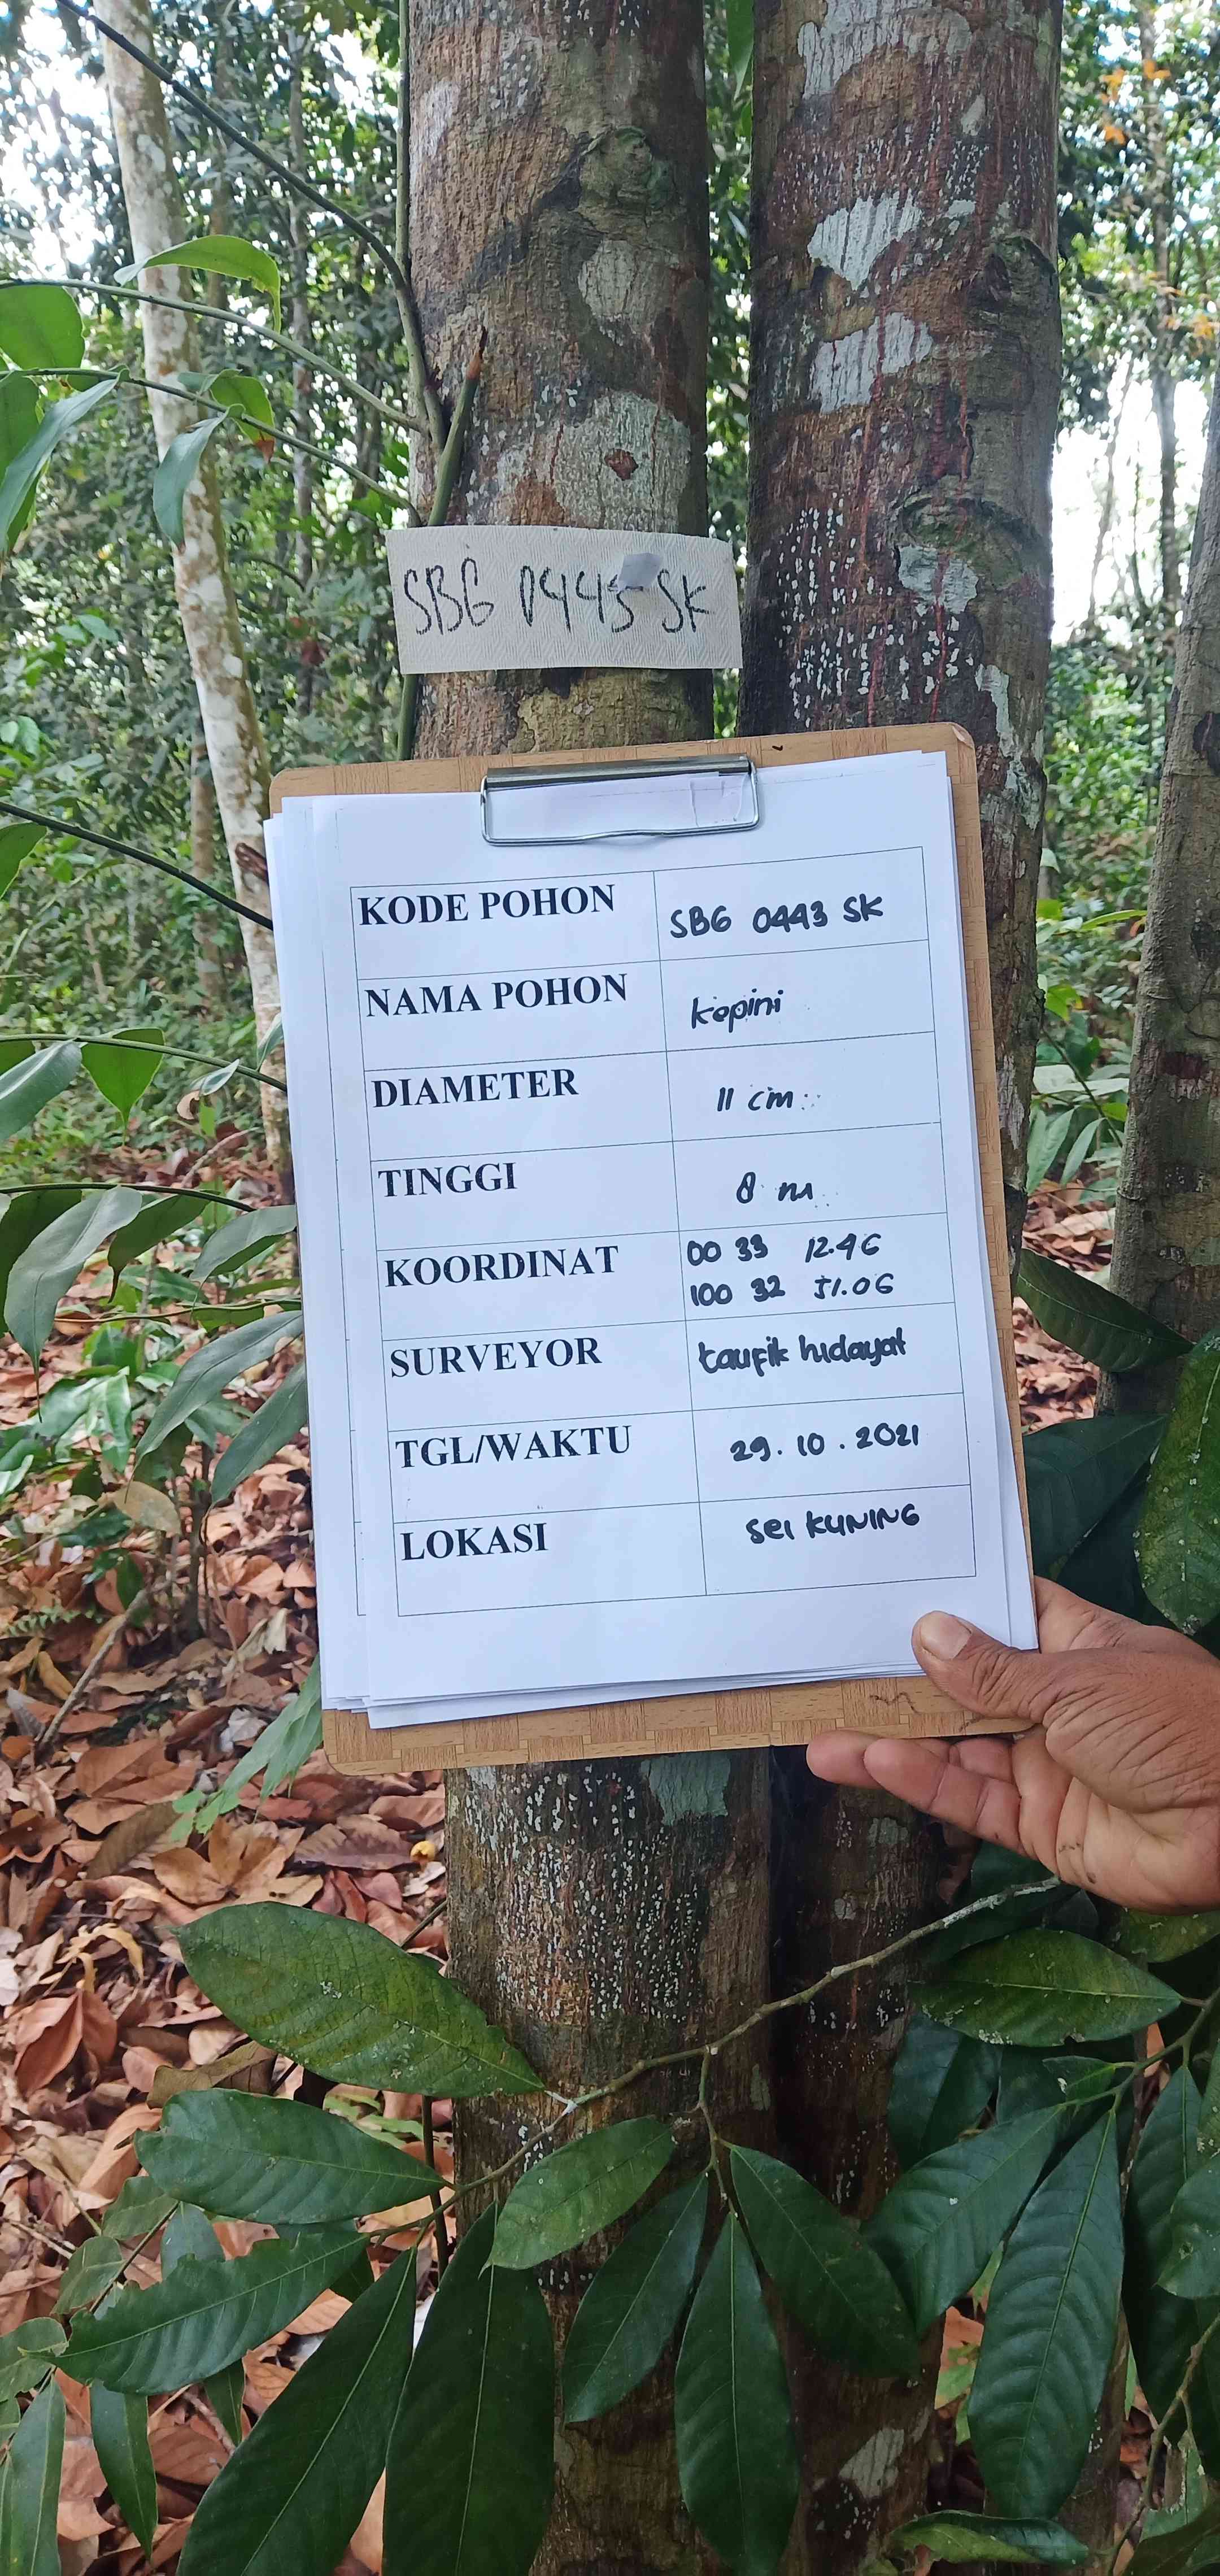 SBG 0443 SK
KODE POHON SBG 0443 SK
NAMA POHON kepini
DIAMETER 11 cm
TINGGI 8 m
KOORDINAT 00 33 12.46
100 32 51.06
SURVEYOR taufik hidayat
TGL/WAKTU 29.10.2021
LOKASI sei KUNING